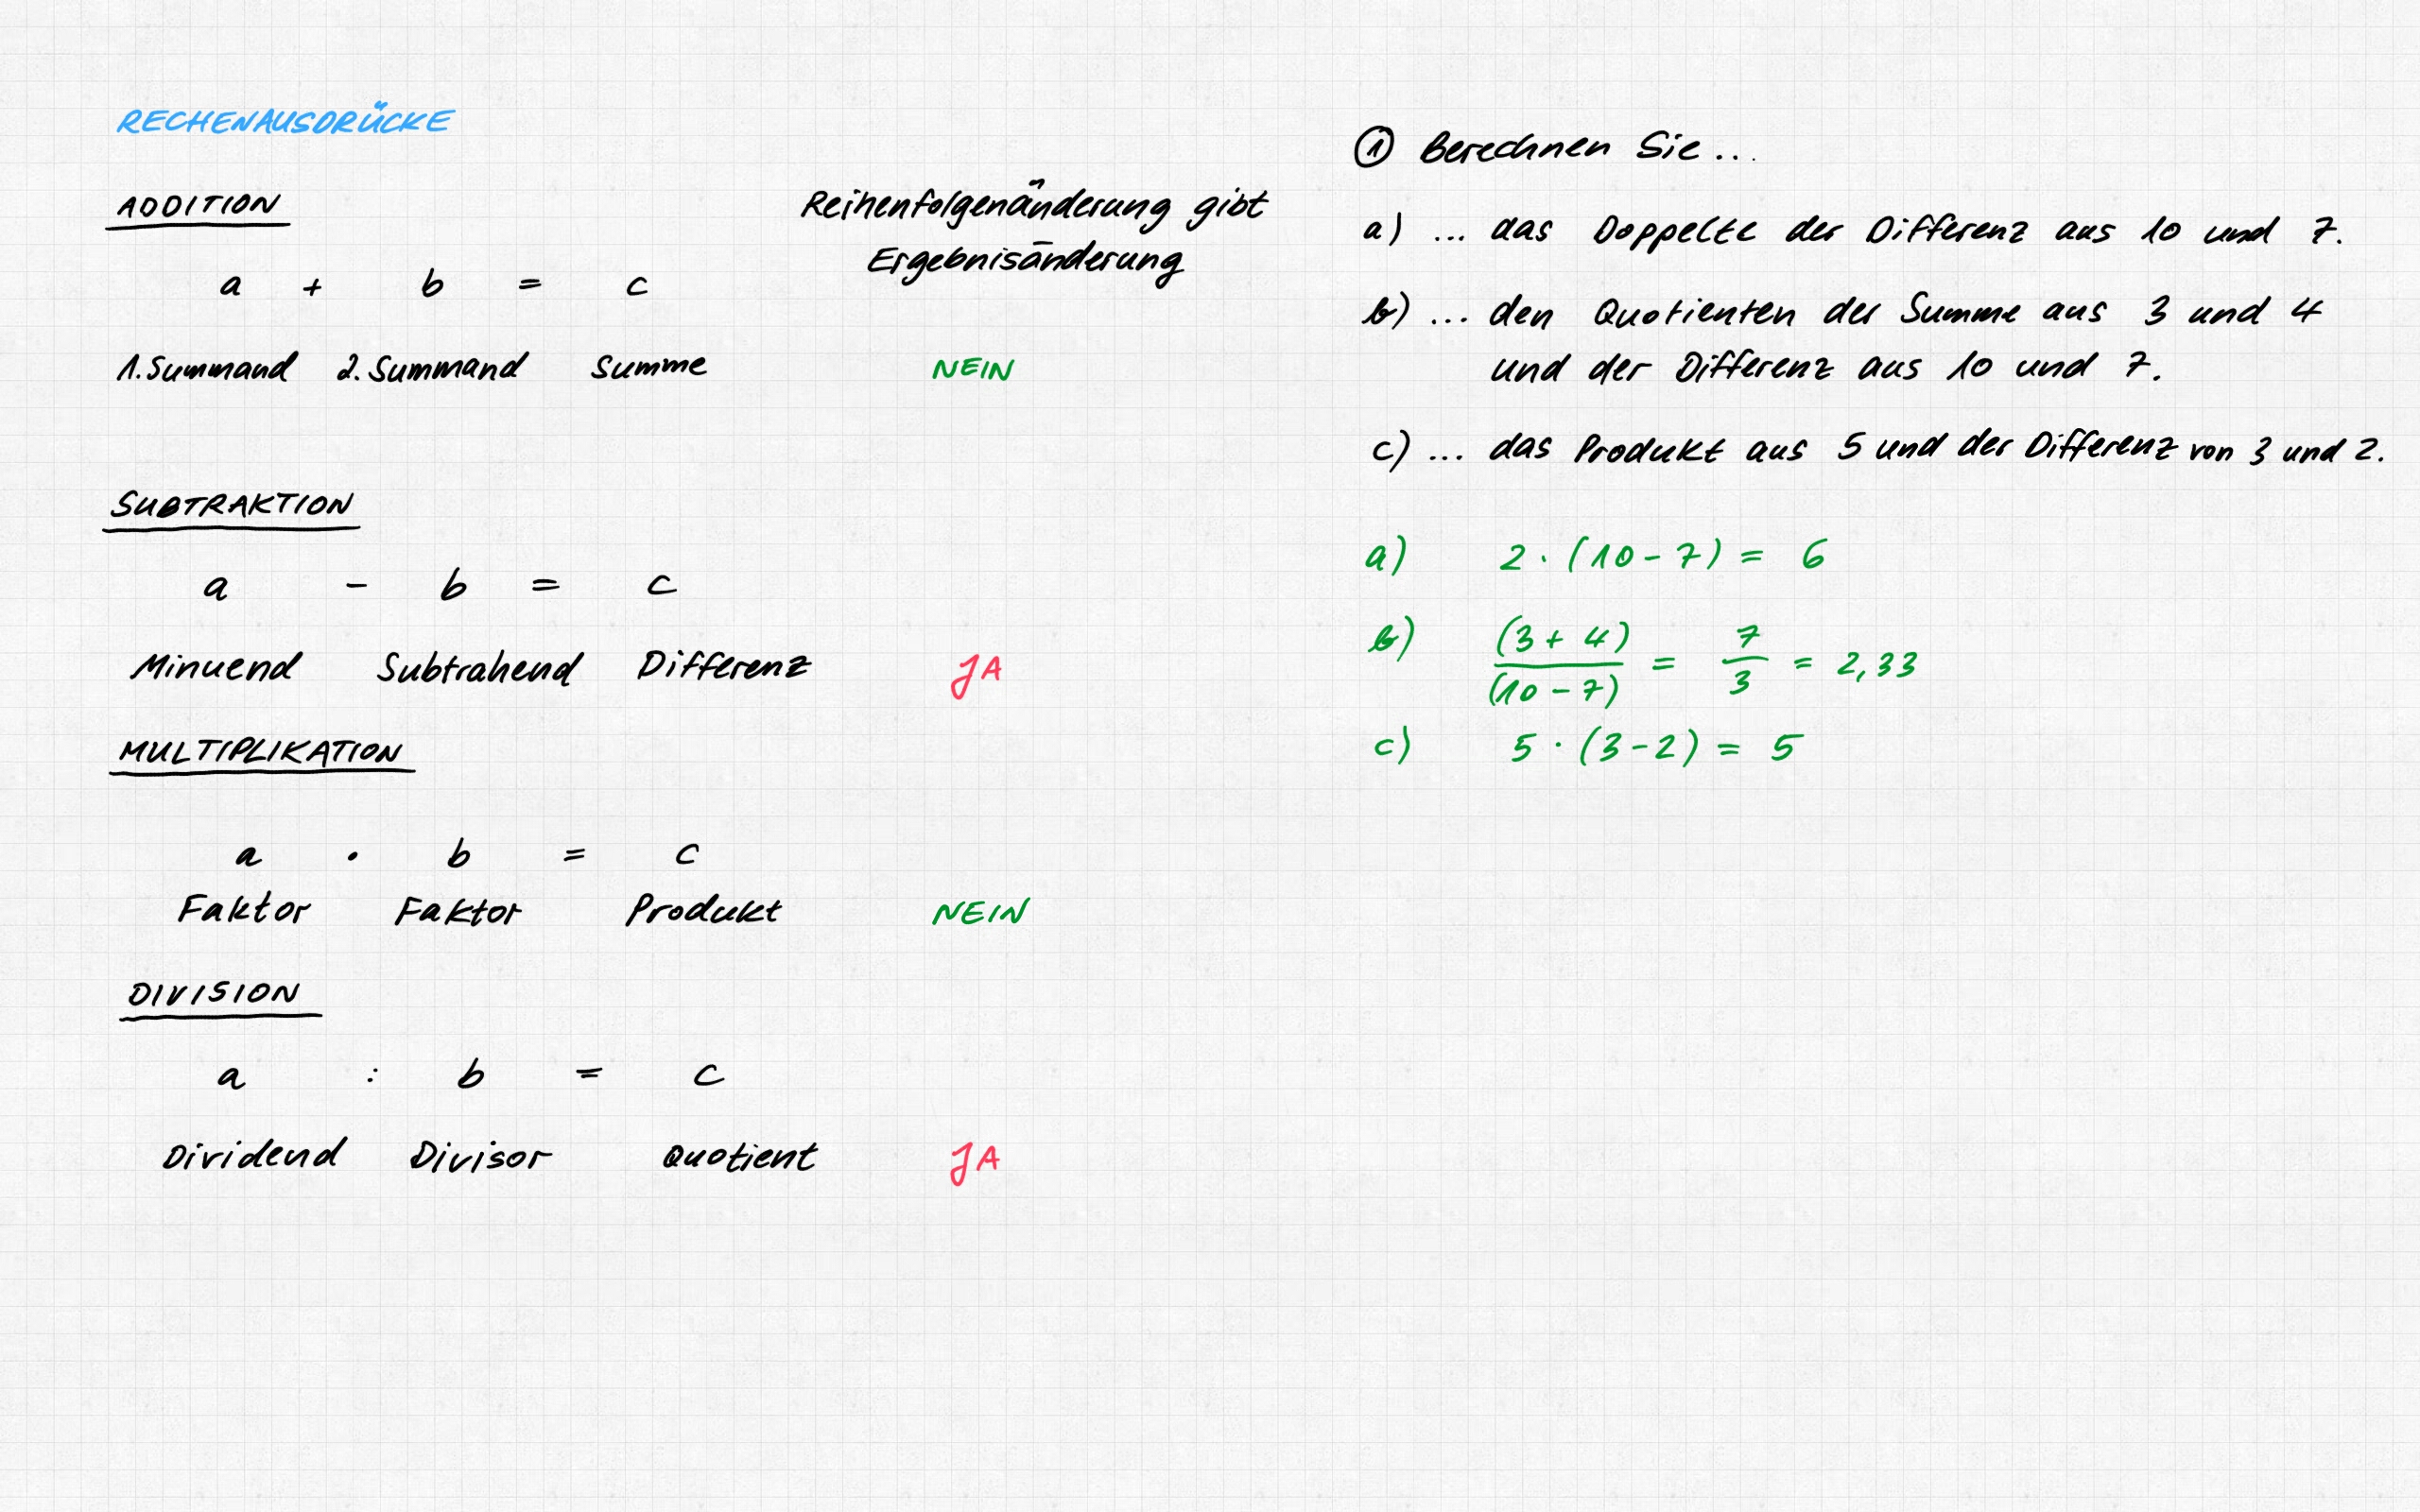 RECHENAUSDRÜCKE
ADDITION
Reihenfolgenänderung gibt
Ergebnisänderung
a + b = c
1. Summand 2. Summand Summe NEIN
SUBTRAKTION
a - b = c
Minuend Subtrahend Differenz JA
MULTIPLIKATION
a · b = c
Faktor Faktor Produkt NEIN
DIVISION
a : b = c
Dividend Divisor Quotient JA
① Berechnen Sie...
a) ... das Doppelte der Differenz aus 10 und 7.
b) ... den Quotienten der Summe aus 3 und 4
und der Differenz aus 10 und 7.
c) ... das Produkt aus 5 und der Differenz von 3 und 2.
a) 2 · (10 - 7) = 6
b) (3 + 4) / (10 - 7) = 7/3 = 2,33
c) 5 · (3 - 2) = 5